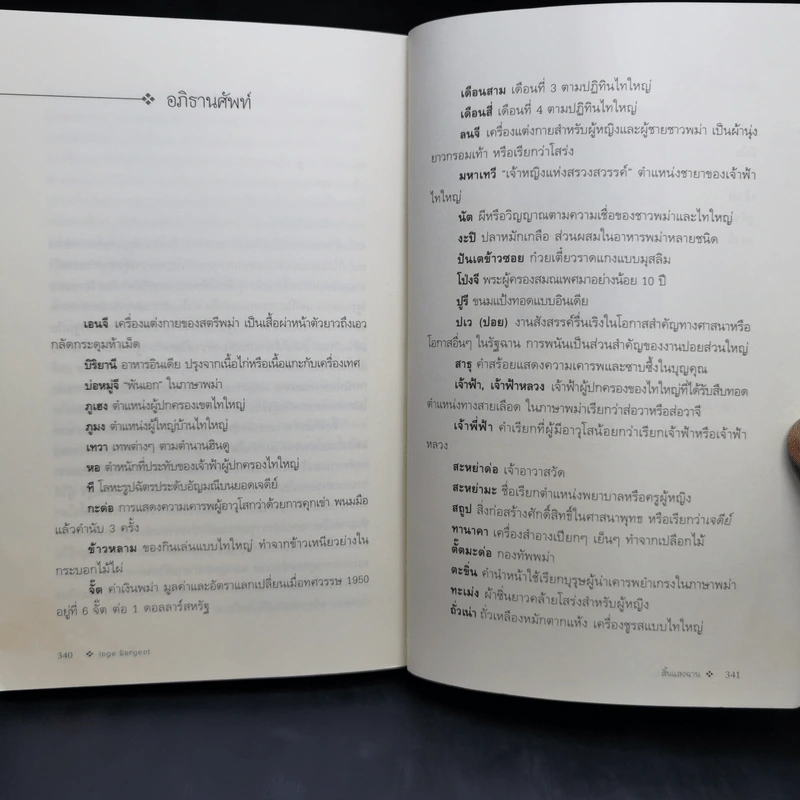 อภิธานศัพท์
เอนจี เครื่องแต่งกายของสตรีพม่า เป็นเสื้อผ่าหน้าตัวยาวถึงเอว
กลัดกระดุมห้าเม็ด
บิริยานี อาหารอินเดีย ปรุงจากเนื้อไก่หรือเนื้อแกะกับเครื่องเทศ
บ่อหมู่จี “พันเอก” ในภาษาพม่า
ภูเฮง ตำแหน่งผู้ปกครองเขตไทใหญ่
ภูมง ตำแหน่งผู้ใหญ่บ้านไทใหญ่
เทวา เทพต่างๆ ตามตำนานฮินดู
หอ ตำหนักที่ประทับของเจ้าฟ้าผู้ปกครองไทใหญ่
ที โลหะรูปฉัตรประดับอัญมณีบนยอดเจดีย์
กะด่อ การแสดงความเคารพผู้อาวุโสกว่าด้วยการคุกเข่า พนมมือ
แล้วคำนับ 3 ครั้ง
ข้าวหลาม ของกินเล่นแบบไทใหญ่ ทำจากข้าวเหนียวย่างใน
กระบอกไม้ไผ่
จั๊ต ค่าเงินพม่า มูลค่าและอัตราแลกเปลี่ยนเมื่อทศวรรษ 1950
อยู่ที่ 6 จั๊ต ต่อ 1 ดอลลาร์สหรัฐ
340 ❖ Inge Sargent
เดือนสาม เดือนที่ 3 ตามปฏิทินไทใหญ่
เดือนสี่ เดือนที่ 4 ตามปฏิทินไทใหญ่
ลนจี เครื่องแต่งกายสำหรับผู้หญิงและผู้ชายชาวพม่า เป็นผ้านุ่ง
ยาวกรอมเท้า หรือเรียกว่าโสร่ง
มหาเทวี “เจ้าหญิงแห่งสรวงสวรรค์” ตำแหน่งชายาของเจ้าฟ้า
ไทใหญ่
นัต ผีหรือวิญญาณตามความเชื่อของชาวพม่าและไทใหญ่
งะปิ ปลาหมักเกลือ ส่วนผสมในอาหารพม่าหลายชนิด
ปันเตข้าวซอย ก๋วยเตี๋ยวราดแกงแบบมุสลิม
โป่งจี พระผู้ครองสมณเพศมาอย่างน้อย 10 ปี
ปูรี ขนมแป้งทอดแบบอินเดีย
ปเว (ปอย) งานสังสรรค์รื่นเริงในโอกาสสำคัญทางศาสนาหรือ
โอกาสอื่นๆ ในรัฐฉาน การพนันเป็นส่วนสำคัญของงานปอยส่วนใหญ่
สาธุ คำสร้อยแสดงความเคารพและซาบซึ้งในบุญคุณ
เจ้าฟ้า, เจ้าฟ้าหลวง เจ้าฟ้าผู้ปกครองของไทใหญ่ที่ได้รับสืบทอด
ตำแหน่งทางสายเลือด ในภาษาพม่าเรียกว่าส่อวาหรือส่อวาจี
เจ้าพี่ฟ้า คำเรียกที่ผู้มีอาวุโสน้อยกว่าเรียกเจ้าฟ้าหรือเจ้าฟ้า
หลวง
สะหย่าด่อ เจ้าอาวาสวัด
สะหย่ามะ ชื่อเรียกตำแหน่งพยาบาลหรือครูผู้หญิง
สถูป สิ่งก่อสร้างศักดิ์สิทธิ์ในศาสนาพุทธ หรือเรียกว่าเจดีย์
ทานาคา เครื่องสำอางเปียกๆ เย็นๆ ทำจากเปลือกไม้
ตั๊ตมะด่อ กองทัพพม่า
ตะขิ่น คำนำหน้าใช้เรียกบุรุษผู้น่าเคารพยำเกรงในภาษาพม่า
ทะเม่ง ผ้าซิ่นยาวคล้ายโสร่งสำหรับผู้หญิง
ถั่วเน่า ถั่วเหลืองหมักตากแห้ง เครื่องชูรสแบบไทใหญ่
สิ้นแสงฉาน ❖ 341